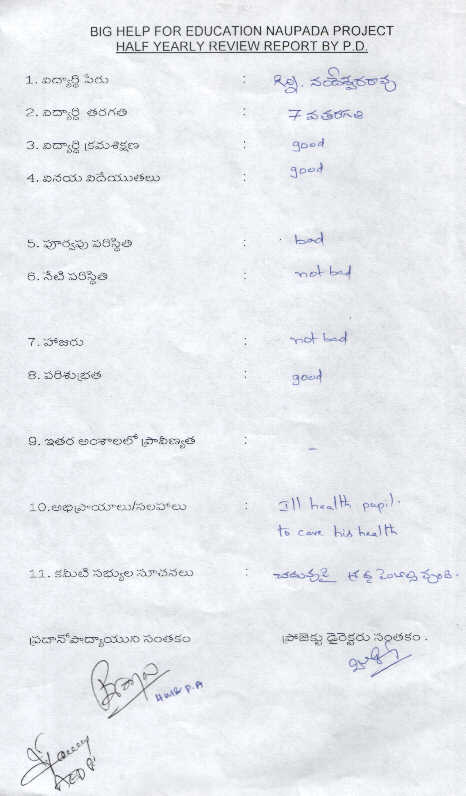 BIG HELP FOR EDUCATION NAUPADA PROJECT
HALF YEARLY REVIEW REPORT BY P.D.
1. విద్యార్థి పేరు :
2. విద్యార్థి తరగతి : 7 వ తరగతి
3. విద్యార్థి క్రమశిక్షణ : good
4. వినయ విదేయుతలు : good
5. పూర్వపు పరిస్థితి : bad
6. నేటి పరిస్థితి : not bad
7. హాజరు : not bad
8. పరిశుభ్రత : good
9. ఇతర అంశాలలో ప్రావీణ్యత : –
10. అభిప్రాయాలు/సలహాలు : Ill health pupil.
to care his health
11. కమిటి సభ్యుల సూచనలు : చదువుపై శ్రద్ధ
ప్రదానోపాద్యాయుని సంతకం ప్రాజెక్టు డైరెక్టరు సంతకం .